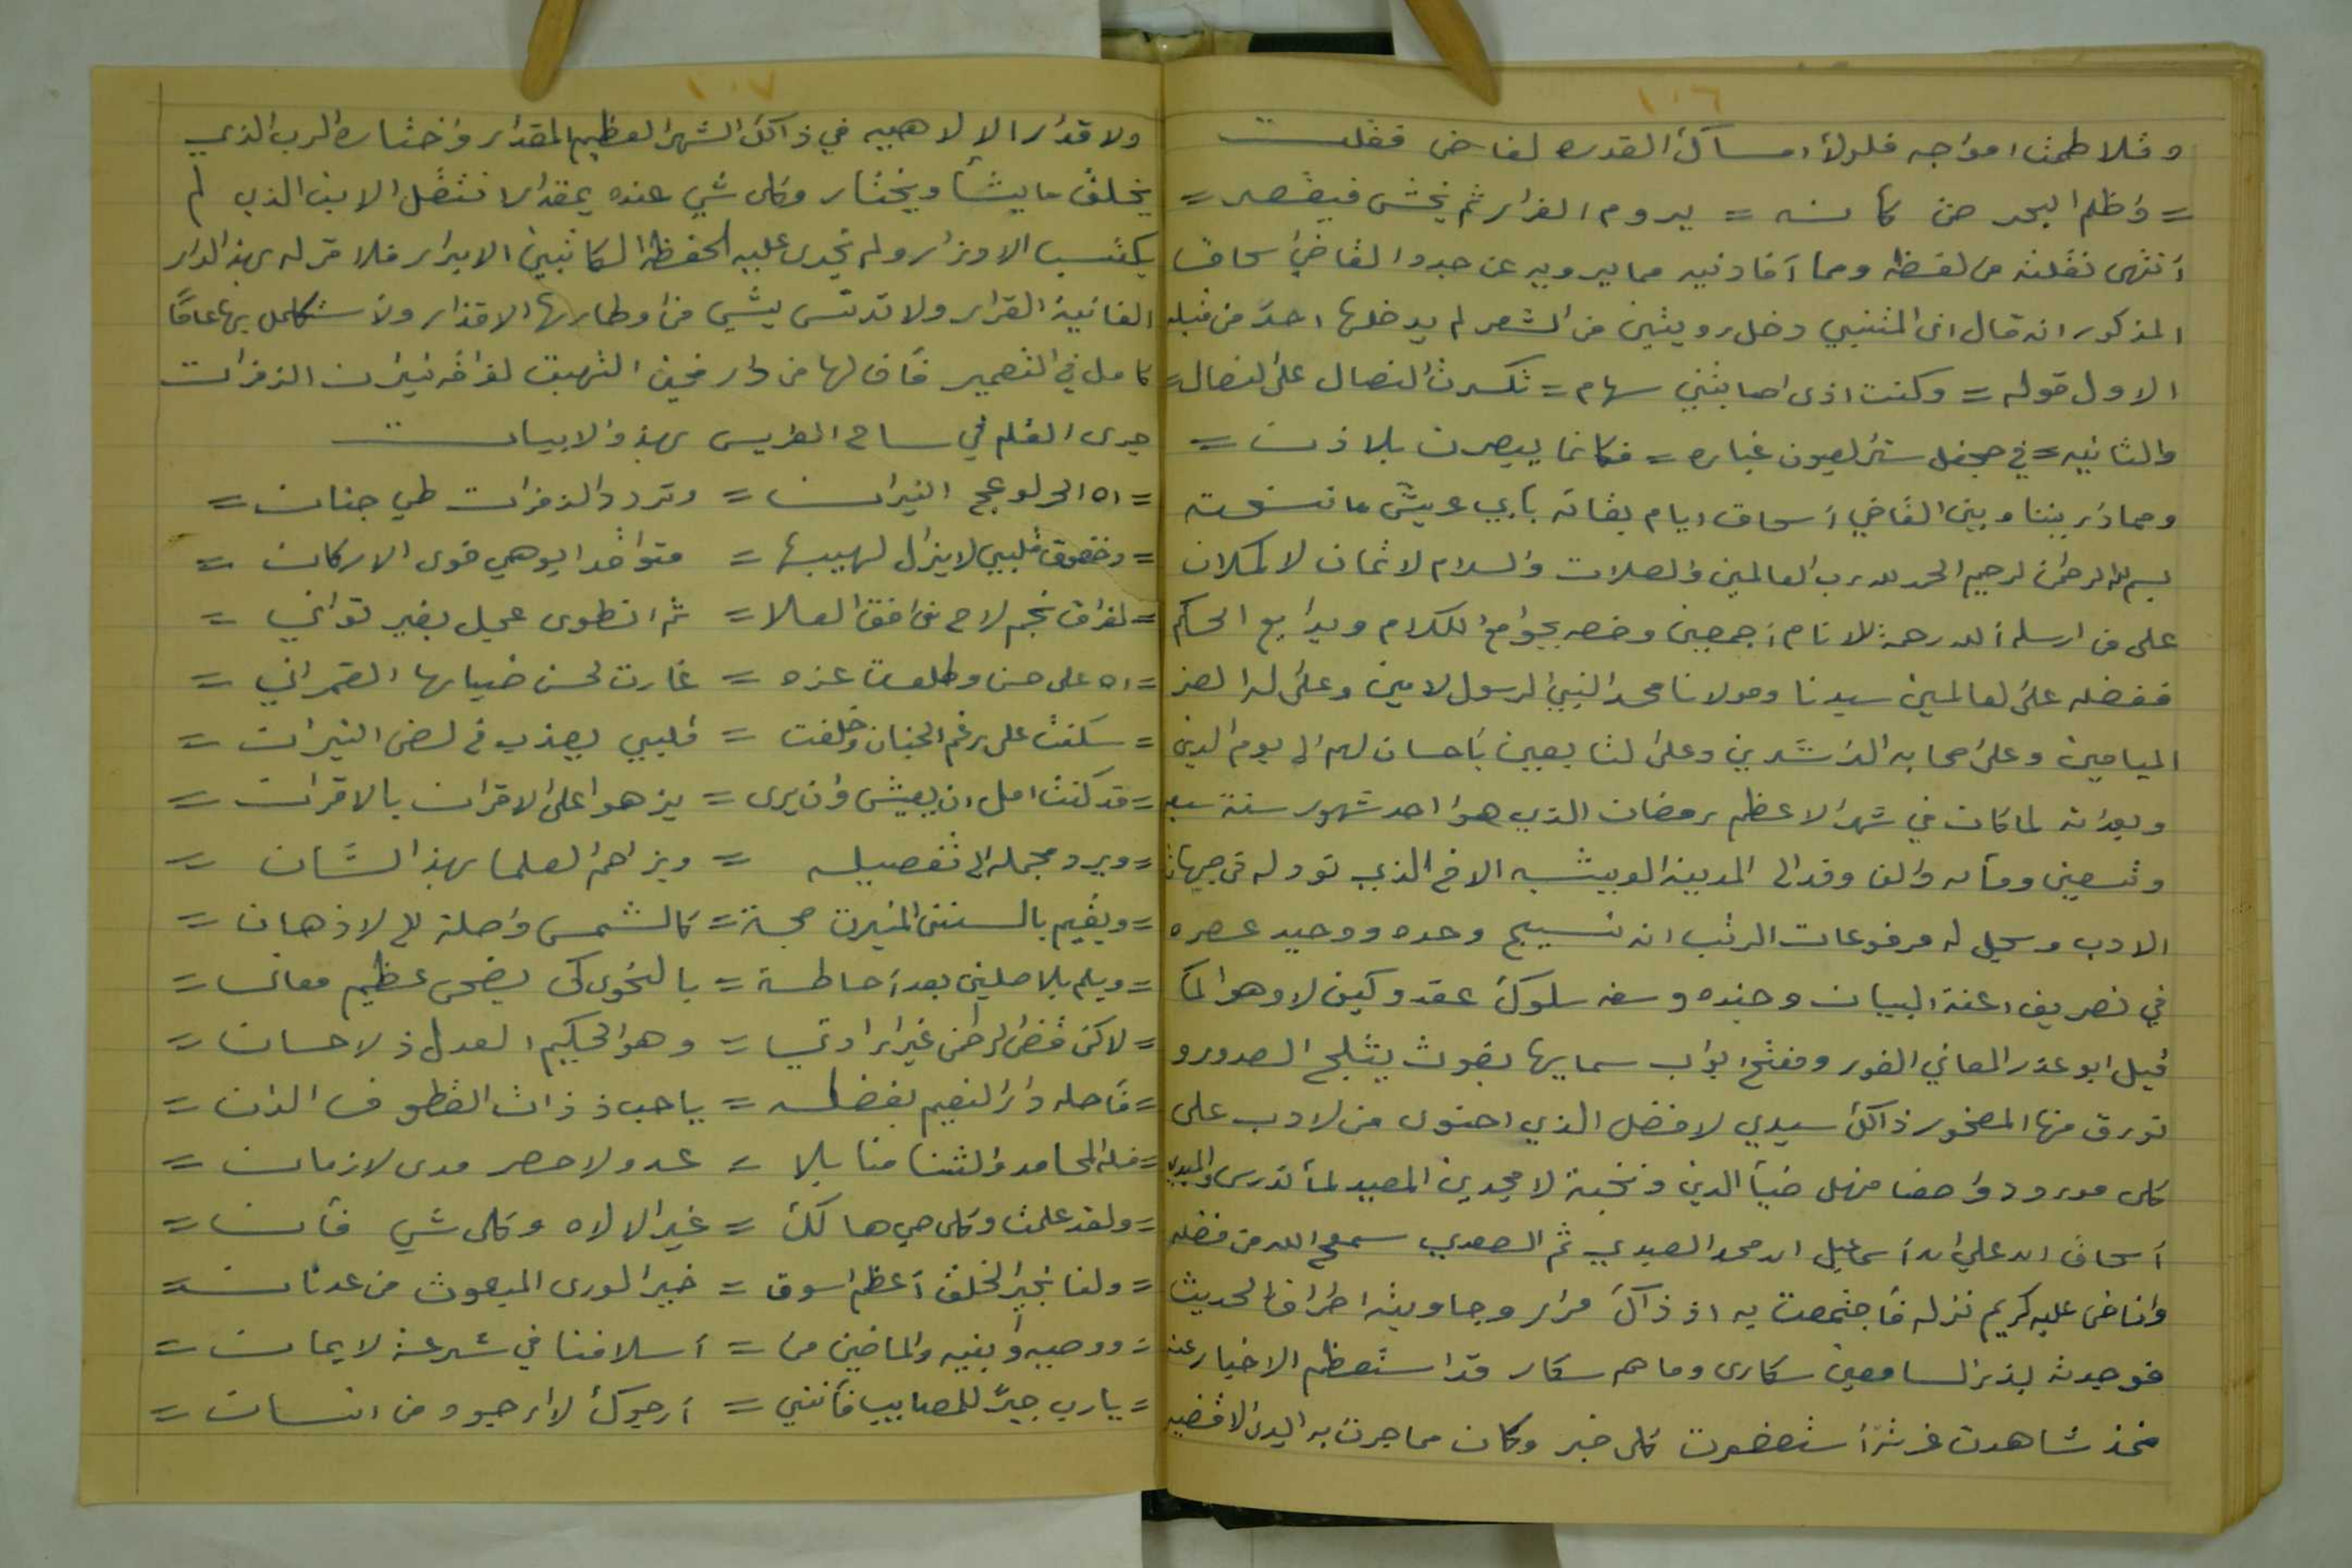 ١٠٦
وتلاطمت امواجه فلولا امساك القدره لفاض فقلت
= واظلم البحر حتى كأنه = يروم الفرار ثم يخشى فيقصر =
أنتهى نقلته من لفظه ومما أفادنيه مما يرويه عن جدو القاضي اسحاق
المذكور انه قال ان المتنبي دخل رويتين من الشعر لم يدخلها احدً من قبله
الاول قوله = وكنت اذى اصابتني سهام = تكسرت النصال على النصال =
والثانيه = في جحفل ستر العيون غباره = فكانما يبصرن بلاذن =
ومما دار بيننا وبين القاضي أسحاق ايام بقائه بأبي عريش ما نسخته
بسم الله الرحمن الرحيم الحمد لله رب العالمين والصلات والسلام لاتمان لاكملان
على من ارسله الله رحمة للانام أجمعين وخصه بجوامع الكلام وبدايع الحكم
ففضله على العالمين سيدنا ومولانا محمد النبي الرسول لامين وعلى اله الغر
الميامين وعلى اصحابه الراشدين وعلى لتابعين بأحسان لهم الى يوم الدين
وبعد انه لما كان في شهر الاعظم رمضان الذي هوا احد شهور سنة سبع
وتسعين ومأيه والف وفد الى المدينة العريشيه الاخ الذي تودله في جبهات
الادب وسجل له مرفوعات الرتب انه نسيج وحده ووحيد عصره
في تصريف اعنة البيان وجنده وسفه سلوك عقده وكيف لا وهو الما
قيل ابو عذر المعاني الغور ومفتح ابواب سمايها بغوث يثلج الصدور و
تورق منها الصخور ذاك سيدي لافضل الذي احتوى من لادب على
كل مورود واصفا منهل ضيأ الدين ونخبة لا مجيدين المعيد لما تدرس والمبدي
أسحاق ابن علي ابن أسماعيل ابن محمد العبدي ثم الصعدي سمح الله من فضله
وافاض عليه كريم نزله فأجتمعت به اذ ذاك مرار وجاوبته اطراف الحديث
فوجدته يذر السامعين سكارى وما هم سكار قد استعظم الاخيار عنه
فمذ شاهدت غرته أستصغرت كل خبر وكان مما جرت به اليد الاقضيه
١٠٧
ولاقدار الالاهيه في ذاك الشهر العظيم المقدار واختاره الرب الذي
يخلق ما يشأ ويختار وكل شي عنده بمقدار انتقل الابن الذي لم
يكتسب الاوزار ولم تجرى عليه الحفظه الكاتبين الابرار فلا قر له بهذ الدار
الفانية القرار ولا تدنس بشي من اوطارها الاقذار ولا ستكمل بها عامًا
كامل في التعمير فأف لها من دار فحين التهبت لفراقه نيران الزفرات
جرى القلم في ساح الطريس بهذ والابيات
= اه الحر لوعج النيران = وتردد الزفرات طي جنان =
= وخفوق قلبي لا يزل لهيبها = متواقدا يوهي قوى الاركان =
= لفراق نجم لاح في افق العلا = ثم انطوى عجل بغير تواني =
= اه على حسن وطلعت عزه = غارت لحسن ضيايها القمراني =
= سكنت على رغم الجنان وخلفت = قلبي يعذب في لضى النيران =
= قد كنت امل ان يعيش وان يرى = يزهوا على الاقران بالاقران =
= ويرد مجمله الى تفصيله = ويزاحم العلما بهذ الشان =
= ويقيم بالسنن المنيرت حجة = كالشمس واصلة للاذهان =
= ويلم بلاصلين بعد أحاطة = بالنحوى كي يضحى عظيم معان =
= لاكن قضى الرحمن غير ارادتي = وهو الحكيم العدل ذ لاحسان =
= فأحله دار النعيم بفضله = ياحبذ ذات القطوف الدان =
= فله المحامد والثنا منا بلا = عد ولا حصر مدى لازمان =
= ولقد علمت وكل حي هالك = غير الالاه وكل شي فان =
= ولنا بخير الخلق أعظم اسوة = خير الورى المبعوث من عدنان =
= ووصيه وأبنيه والماضين من = أسلافنا في شرعة لايمان =
= يارب جبرً للمصايب فأنني = أرجوك لا ارجود من انسان =